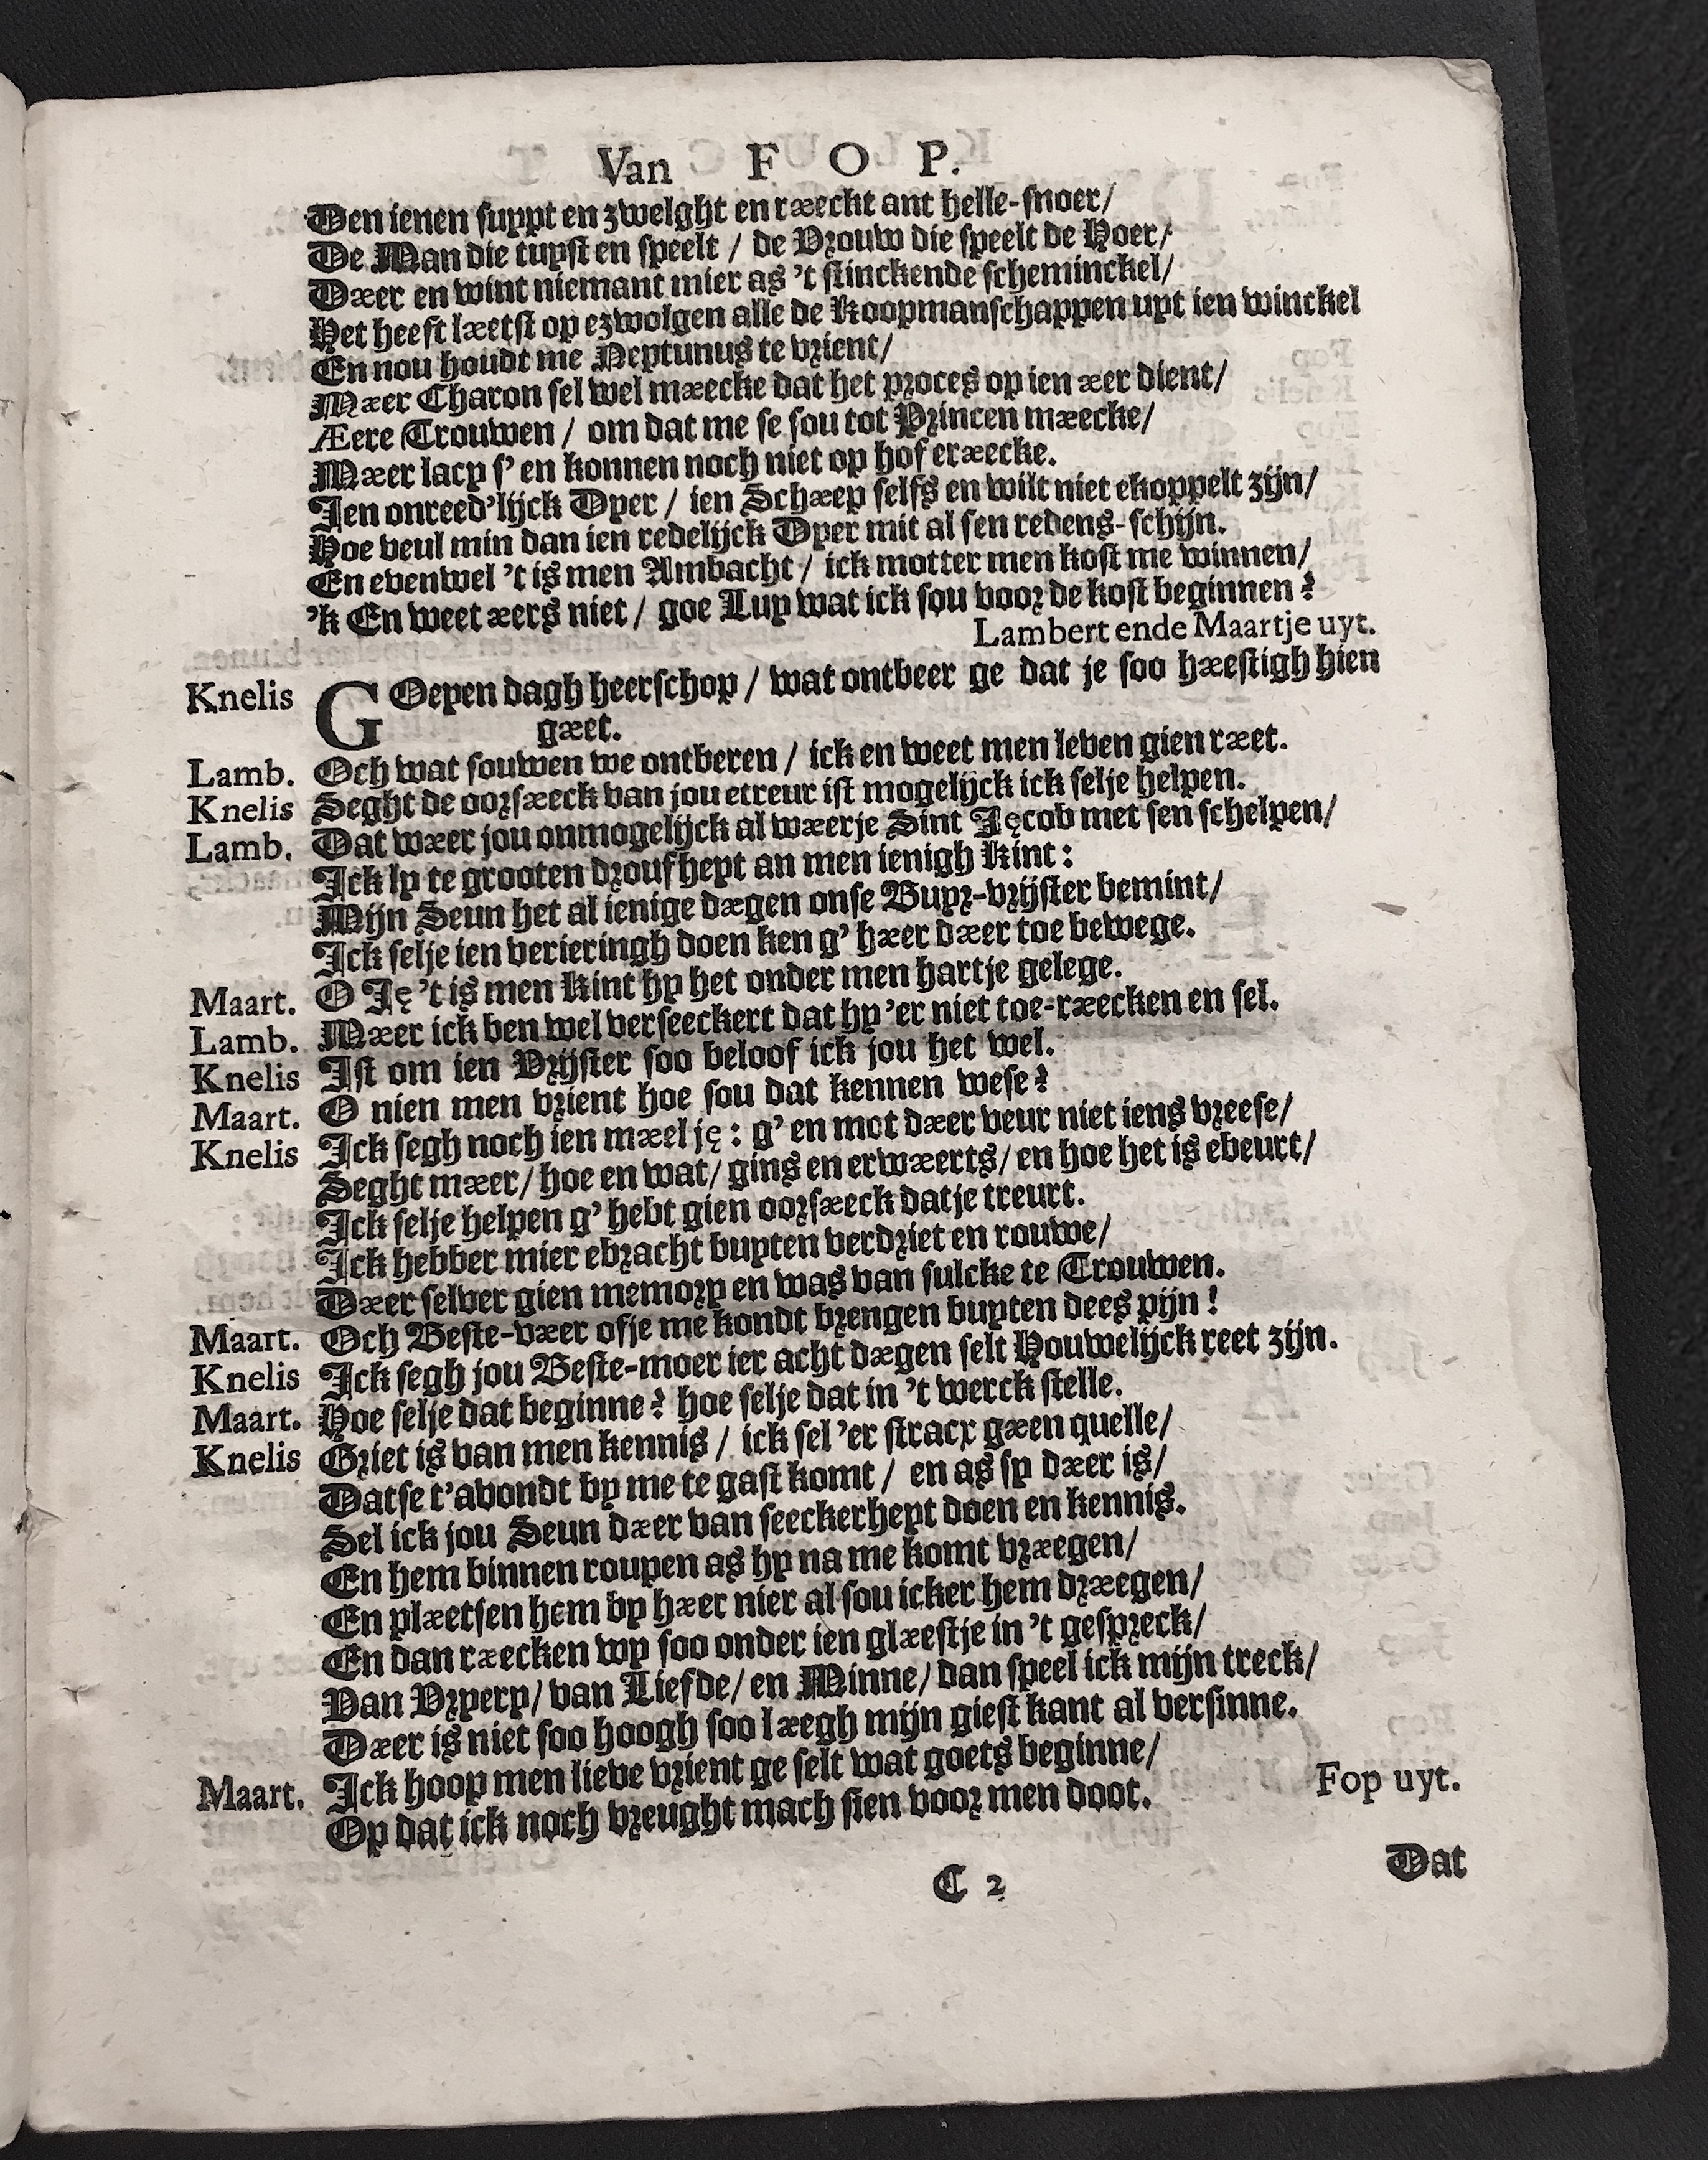 Van F O P.
Den ienen suypt en zwelght en ræeckt ant helle-snoer/
De Man die tuyst en speelt / de Vrouw die speelt de Hoer/
Dæer en wint niemant mier as 't stinckende scheminckel/
Het heeft læetst op ezwolgen alle de Koopmanschappen uyt ien winckel
En nou houdt me Neptunus te vrient/
Mæer Charon sel wel mæcke dat het proces op ien æer dient/
Æere Trouwen / om dat me se sou tot Princen mæcke/
Mæer lacy s' en konnen noch niet op hof eræecke.
Ien onreed'lijck Dyer / ien Schæep selfs en wilt niet ekoppelt zijn/
Hoe veul min dan ien redelijck Dyer mit al sen redens-schijn.
En evenwel 't is men Ambacht / ick motter men kost me winnen/
'k En weet æers niet / goe Luy wat ick sou voor de kost beginnen?
Lambert ende Maartje uyt.
Knelis GOeyen dagh heerschop / wat ontbeer ge dat je soo hæestigh hien
gæet.
Lamb. Och wat souwen we ontberen / ick en weet men leven gien ræet.
Knelis Seght de oorsæeck van jou etreur ist mogelijck ick selje helpen.
Lamb. Dat wæer jou onmogelijck al wæerje Sint Jęcob met sen schelpen/
Ick ly te grooten droufheyt an men ienigh Kint:
Mijn Seun het al ienige dægen onse Buyr-vrijster bemint/
Ick selje ien verieringh doen ken g' hæer dæer toe bewege.
Maart. O Ję 't is men Kint hy het onder men hartje gelege.
Lamb. Mæer ick ben wel verseeckert dat hy 'er niet toe-ræecken en sel.
Knelis Ist om ien Vrijster soo beloof ick jou het wel.
Maart. O nien men vrient hoe sou dat kennen wese?
Knelis Ick segh noch ien mæel ję: g' en mot dæer veur niet iens vreese/
Seght mæer/ hoe en wat/ gins en erwæerts/ en hoe het is ebeurt/
Ick selje helpen g' hebt gien oorsæeck datje treurt.
Ick hebber mier ebracht buyten verdriet en rouwe/
Dæer selver gien memory en was van sulcke te Trouwen.
Maart. Och Beste-væer ofje me kondt brengen buyten dees pijn!
Knelis Ick segh jou Beste-moer ier acht dægen selt Houwelijck reet zijn.
Maart. Hoe selje dat beginne? hoe selje dat in 't werck stelle.
Knelis Griet is van men kennis / ick sel 'er stracx gæen quelle/
Datse t'avondt by me te gast komt / en as sy dæer is/
Sel ick jou Seun dæer van seeckerheyt doen en kennis.
En hem binnen roupen as hy na me komt vræegen/
En plæetsen hem by hæer nier al sou icker hem dræegen/
En dan ræecken wy soo onder ien glæestje in 't gespreck/
Van Vryery/ van Liefde/ en Minne/ dan speel ick mijn treck/
Dæer is niet soo hoogh soo læegh mijn giest kant al versinne.
Maart. Ick hoop men lieve vrient ge selt wat goets beginne/
Op dat ick noch vreught mach sien voor men doot.
Fop uyt.
C 2
Dat